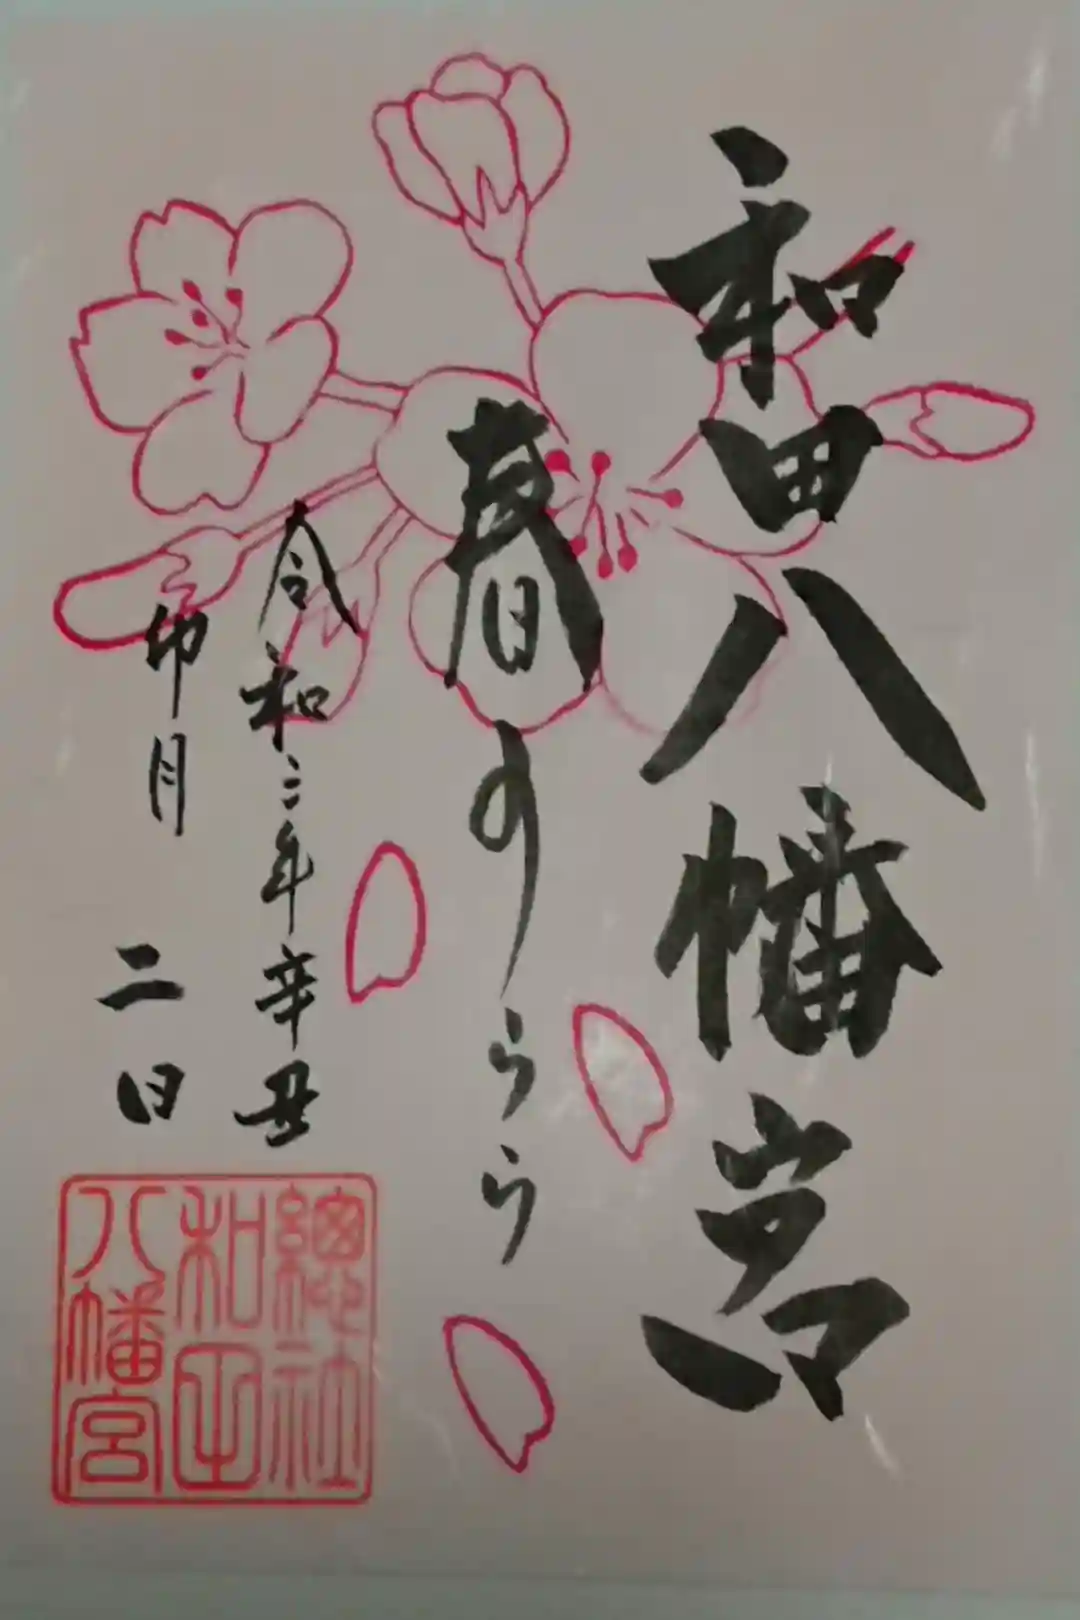 和田八幡宮
春のうらら
令和三年辛丑
卯月 二日
總社
和田
八幡宮